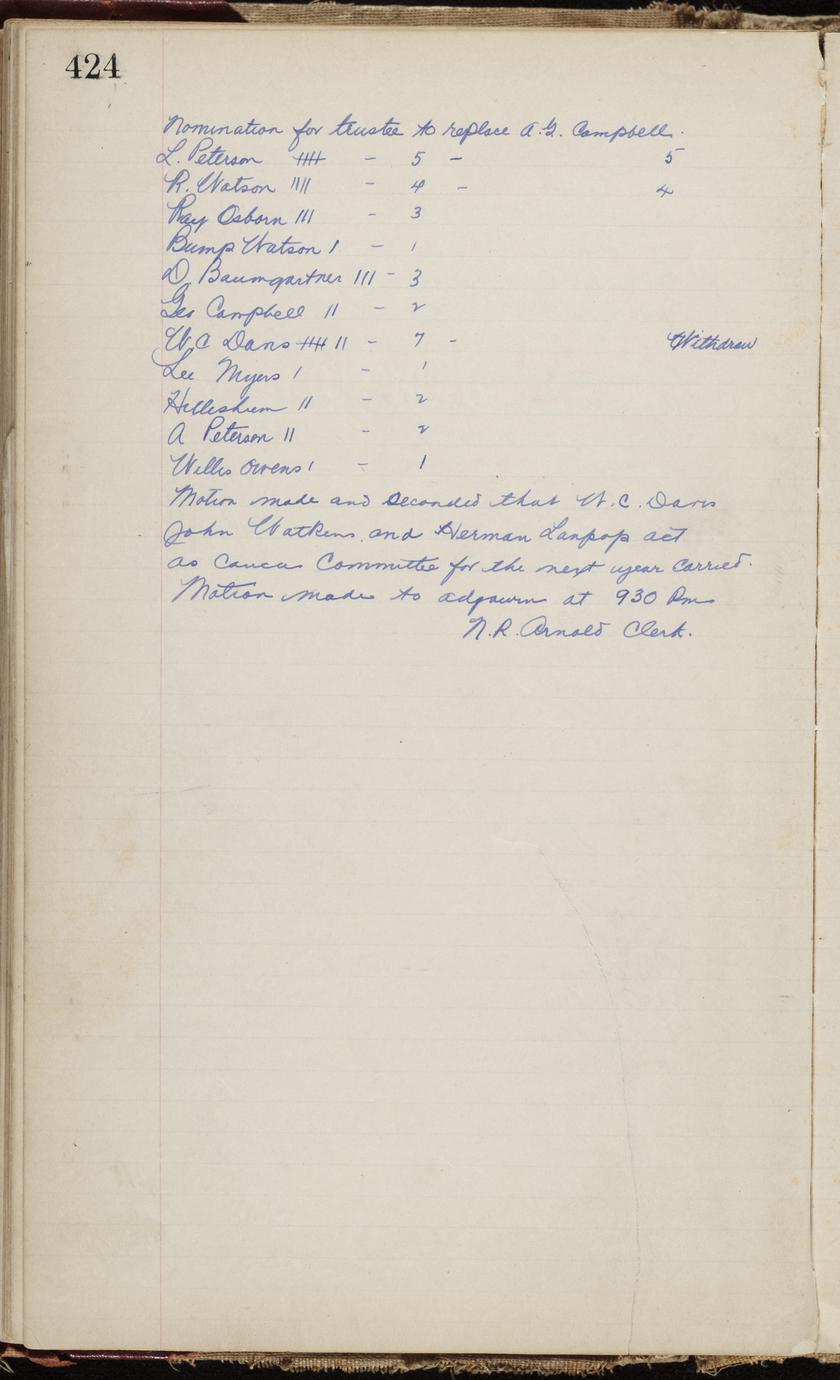 424
Nomination for trustee to replace A.G. Campbell.
L. Peterson 卌 - 5 - 5
R. Watson |||| - 4 - 4
Ray Osborn ||| - 3
Bump Watson | - 1
D. Baumgartner ||| - 3
Geo Campbell || - 2
W.C Davis 卌 || - 7 - Withdrew
Lee Myers | - 1
Hillesheim || - 2
A Peterson || - 2
Willis Owens | - 1
Motion made and Seconded that W.C. Davis
John Watkins, and Herman act
as Caucus Committee for the next year carried.
Motion made to adjourn at 930 Pm
N.R. Arnold Clerk.